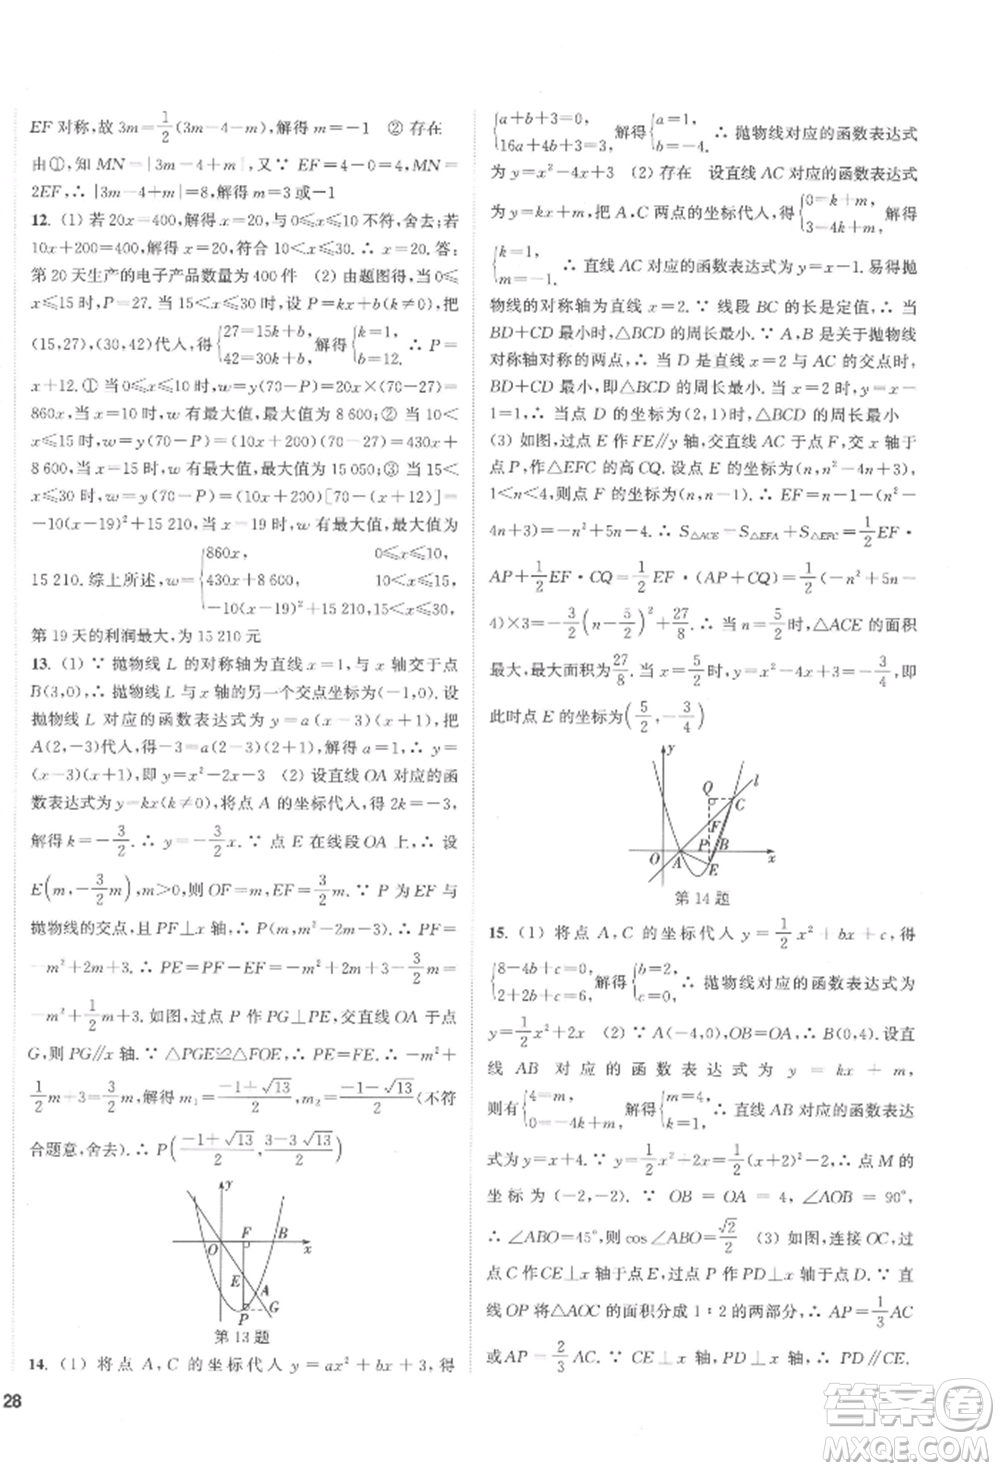 EF 对称,故 3m=1/2(3m-4-m),解得 m=-1  ② 存在
由①,知 MN=|3m-4+m|,又∵ EF=4-0=4,MN=
2EF,∴ |3m-4+m|=8,解得 m=3或-1
12. (1) 若20x=400,解得 x=20,与 0≤x≤10 不符,舍去;若
10x+200=400,解得 x=20,符合 10<x≤30.∴ x=20.答:
第 20 天生产的电子产品数量为 400 件  (2) 由题图得,当 0≤
x≤15 时,P=27. 当 15<x≤30 时,设 P=kx+b(k≠0),把
(15,27),(30,42)代人,得{27=15k+b, 42=30k+b,解得{k=1, b=12.∴ P=
x+12.① 当 0≤x≤10 时,w=y(70-P)=20x×(70-27)=
860x,当 x=10 时,w 有最大值,最大值为 8 600;② 当 10<
x≤15 时,w=y(70-P)=(10x+200)×(70-27)=430x+
8 600,当 x=15 时,w 有最大值,最大值为 15 050;③ 当 15<
x≤30 时,w=y(70-P)=(10x+200)[70-(x+12)]=
-10(x-19)²+15 210,当 x=19 时,w 有最大值,最大值为
15 210.综上所述,w={860x, 0≤x≤10, 430x+8 600, 10<x≤15, -10(x-19)²+15 210,15<x≤30.
第 19 天的利润最大,为 15 210 元
13. (1) ∵ 抛物线 L 的对称轴为直线 x=1,与 x 轴交于点
B(3,0),∴ 抛物线 L 与 x 轴的另一个交点坐标为(-1,0).设
抛物线 L 对应的函数表达式为 y=a(x-3)(x+1),把
A(2,-3)代人,得-3=a(2-3)(2+1),解得 a=1.∴ y=
(x-3)(x+1),即 y=x²-2x-3  (2) 设直线 OA 对应的函
数表达式为 y=kx(k≠0),将点 A 的坐标代人,得-3=2k,
解得 k=-3/2.∴ y=-3/2x.∵ 点 E 在线段 OA 上,∴ 设
E(m,-3/2m),m>0,则 OF=m,EF=3/2m.∵ P 为 EF 与
抛物线的交点,且 PF⊥x 轴,∴ P(m,m²-2m-3).∴ PF=
-m²+2m+3.∴ PE=PF-EF=-m²+2m+3-3/2m=
-m²+1/2m+3.如图,过点 P 作 PG⊥PE,交直线 OA 于点
G,则 PG∥x 轴.∵ △PGE≌△FOE,∴ PE=FE.∴ -m²+
1/2m+3=3/2m,解得 m₁=(-1+√13)/2,m₂=(-1-√13)/2(不符
合题意,舍去).∴ P((-1+√13)/2,(3-3√13)/2)
y
F B
O x
E
A
P G
第 13 题
14. (1) 将点 A,C 的坐标代人 y=ax²+bx+3,得
28
{a+b+3=0, 16a+4b+3=3,解得{a=1, b=-4.∴ 抛物线对应的函数表达式
为 y=x²-4x+3  (2) 存在  设直线 AC 对应的函数表达式
为 y=kx+m(k≠0),把 A,C 两点的坐标代人,得{0=k+m, 3=4k+m,解得
{k=1, m=-1.∴ 直线 AC 对应的函数表达式为 y=x-1.易得抛
物线的对称轴为直线 x=2.∵ 线段 BC 的长是定值,∴ 当
BD+CD 最小时,△BCD 的周长最小.∵ A,B 是关于抛物线
对称轴对称的两点,∴ 当 D 是直线 x=2 与 AC 的交点时,
BD+CD 最小,即△BCD 的周长最小.当 x=2 时,y=x-
1=1,∴ 当点 D 的坐标为(2,1)时,△BCD 的周长最小
(3) 如图,过点 E 作 FE∥y 轴,交直线 AC 于点 F,交 x 轴于
点 P,作△EFC 的高 CQ.设点 E 的坐标为(n,n²-4n+3),
1<n<4,则点 F 的坐标为(n,n-1).∴ EF=n-1-(n²-
4n+3)=-n²+5n-4.∴ S△ACE=S△EFA+S△EFC=1/2EF·
AP+1/2EF·CQ=1/2EF·(AP+CQ)=1/2(-n²+5n-
4)×3=-3/2(n-5/2)²+27/8.∴ 当 n=5/2时,△ACE 的面积
最大,最大面积为27/8.当 x=5/2时,y=x²-4x+3=-3/4,即
此时点 E 的坐标为(5/2,-3/4)
y
Q l
C
F
P B
O A x
E
第 14 题
15. (1) 将点 A,C 的坐标代人 y=1/2x²+bx+c,得
{8-4b+c=0, 2+2b+c=6,解得{b=2, c=0.∴ 抛物线对应的函数表达式为
y=1/2x²+2x  (2) ∵ A(-4,0),OB=OA,∴ B(0,4).设直
线 AB 对应的函数表达式为 y=kx+m,
则有{4=m, 0=-4k+m,解得{k=1, m=4.∴ 直线 AB 对应的函数表达
式为 y=x+4.∵ y=1/2x²+2x=1/2(x+2)²-2,∴ 点 M 的
坐标为(-2,-2).∵ OB=OA=4,∠AOB=90°,
∴ ∠ABO=45°,则 cos∠ABO=√2/2  (3) 如图,连接OC,
过点 C 作CE⊥x 轴于点E,过点 P 作 PD⊥x 轴于点D.∵ 直
线OP 将△AOC 的面积分成 1∶2 的两部分,∴ AP=1/3AC
或AP=2/3AC.∵ CE⊥x轴,PD⊥x轴,∴ PD∥CE.
答案卷
MXQE.COM